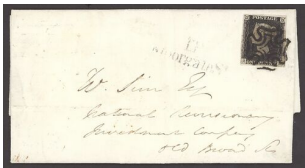 POSTAGE
W. Sim Esq
National Reversionary
Investment Company
Old Broad St